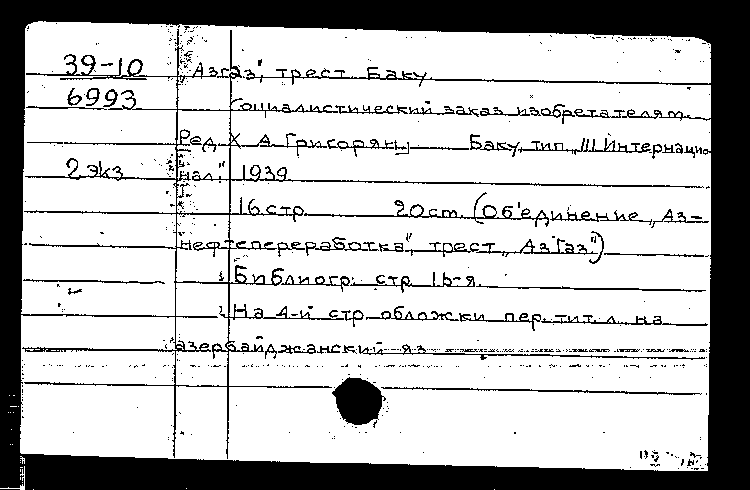 39-10
6993
2 экз
„Азгаз", трест. Баку.
Социалистический заказ изобретателям.
Ред. Х. А. Григорянц. Баку, тип. „III Интернацио-
нал", 1939.
16 стр. 20 cm. (Об'единение „Аз-
нефтепереработка", трест „Азгаз")
1. Библиогр: стр. 16-я.
2. На 4-й стр. обложки пер. тит. л. на
азербайджанский яз.